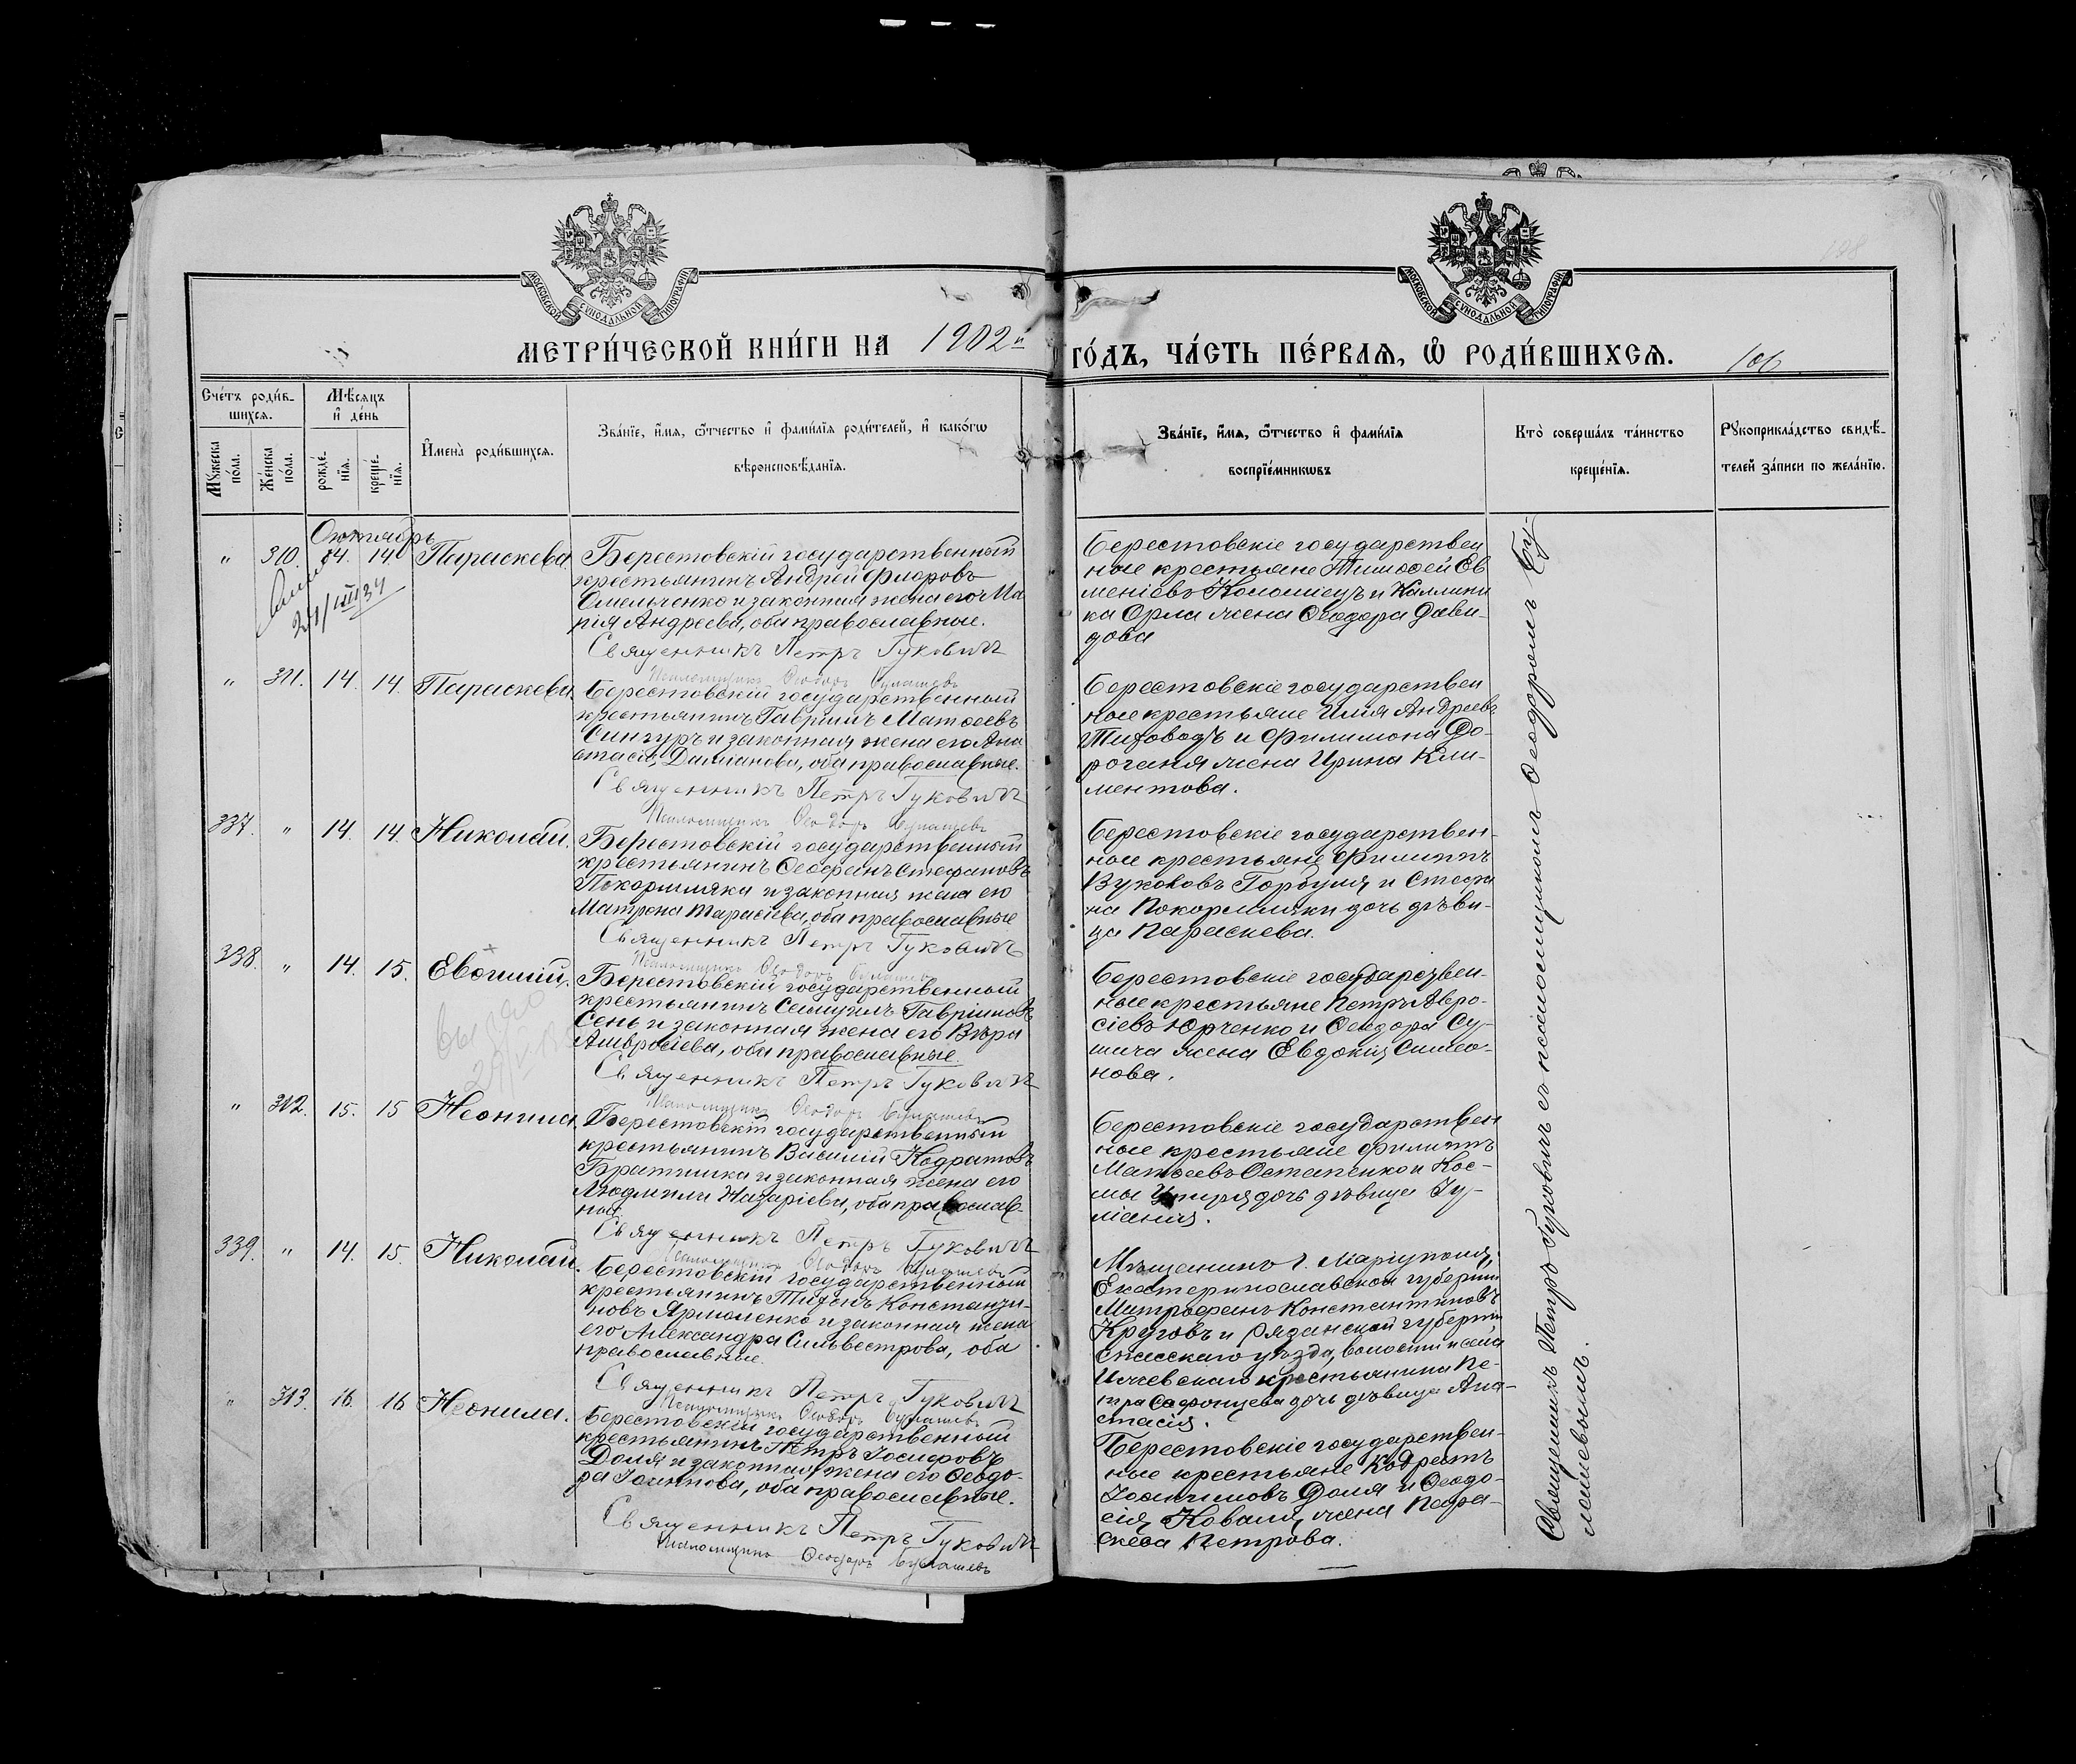 МОСКОВСКОЙ СѴНОДАЛЬНОЙ ТИПОГРАФІИ
МОСКОВСКОЙ СѴНОДАЛЬНОЙ ТИПОГРАФІИ
198
МЕТРИ́ЧЕСКОЙ КНИ́ГИ НА 1902й ГО́ДЪ, ЧА́СТЬ ПЕ́РВАѦ, Ѡ҆ РОДИ́ВШИХСѦ. 106
Сче́тъ роди́в-
шихсѧ.
Мꙋ́жеска по́ла.
Же́нска по́ла.
Мѣ́сѧцъ
и҆ де́нь
рожде́-нїѧ.
креще́-нїѧ.
И҆мена̀ роди́вшихсѧ.
Зва́нїе, и҆́мѧ, ѻ҆́тчество и҆ фами́лїѧ роди́телей, и҆ како́гѡ
вѣроисповѣ́данїѧ.
Зва́нїе, и҆́мѧ, ѻ҆́тчество и҆ фами́лїѧ
воспрїе́мникѡвъ
Кто̀ соверша́лъ та́инство
креще́нїѧ.
Рꙋкоприкла́дство свидѣ́-
телей за́писи по жела́нїю.
Октябрь
" 310. 14. 14. Параскева
Берестовскій государственный
крестьянинъ Андрей Флоровъ
Омельченко и законная жена его Ма
рія Андреева, оба православные.
Священникъ Петръ Гуковичъ
Псаломщикъ Ѳеодоръ Булашевъ
Берестовскіе государствен
ные крестьяне Тимоѳей Ев
меніевъ Коломіецъ и Каллини
ка Орла жена Ѳеодора Дави-
дова
" 311. 14. 14. Параскева.
Берестовскій государственный
крестьянинъ Гавріилъ Матѳеевъ
Сингуръ и законная жена его Ана
стасія Даміанова, оба православные.
Священникъ Петръ Гуковичъ
Псаломщикъ Ѳеодоръ Булашевъ
Берестовскіе государствен
ные крестьяне Илія Андреевъ
Тиховодъ и Филимона До-
роганя жена Ирина Кли-
ментова.
337. " 14. 14. Николай.
Берестовскій государственный
крестьянинъ Ѳеофанъ Стефановъ
Покормляка и законная жена его
Матрона Тарасіева, оба православные
Священникъ Петръ Гуковичъ
Псаломщикъ Ѳеодоръ Булашевъ
Берестовскіе государствен-
ные крестьяне Филиппъ
Вуколовъ Горбуля и Стефа
на Покормляки дочь дѣви-
ца Параскева.
338. " 14. 15. Евѳимій.
Берестовскій государственный
крестьянинъ Самуилъ Гавріиловъ
Сень и законная жена его Вѣра
Амвросіева, оба православные.
Священникъ Петръ Гуковичъ
Псаломщикъ Ѳеодоръ Булашевъ
Берестовскіе государствен-
ные крестьяне Петръ Амвро-
сіевъ Юрченко и Ѳеодора Су-
жена Евдокія Симео-
нова.
" 312. 15. 15 Неонила.
Берестовскій государственный
крестьянинъ Василій Кодратовъ
Братишка и законная жена его
Людмила Назаріева, оба православ-
ные.
Священникъ Петръ Гуковичъ
Псаломщикъ Ѳеодоръ Булашевъ
Берестовскіе государствен
ные крестьяне Филиппъ
Матѳеевъ Остапенко и Кос-
мы дочь дѣвица Іу-
ліанія.
339. " 14. 15. Николай.
Берестовскій государственный
крестьянинъ Тихонъ Константи-
новъ Ярмоленко и законная жена
его Александра Сильвестрова, оба
православные.
Священникъ Петръ Гуковичъ
Псаломщикъ Ѳеодоръ Булашевъ
Мѣщанинъ г. Маріуполя,
Екатеринославской губерніи
Митрофанъ Константиновъ
Круговъ и Рязанской губерніи
Спасскаго уѣзда, волости и села
Ижевскаго крестьянина Пе-
тра Сафонцева дочь дѣвица Ана-
стасія.
" 313. 16. 16 Неонила.
Берестовскій государственный
крестьянинъ Петръ Іосифовъ
Доля и законная жена его Ѳеодо-
ра Іоаннова, оба православные.
Священникъ Петръ Гуковичъ
Псаломщикъ Ѳеодоръ Булашевъ
Берестовскіе государствен-
ные крестьяне Кодратъ
Іоакимовъ Доля и Ѳеодо-
сія Коваля жена Пара-
скева Петрова.
Священникъ Петръ Гуковичъ съ псаломщикомъ Ѳеодоромъ Бу-
лашевымъ.